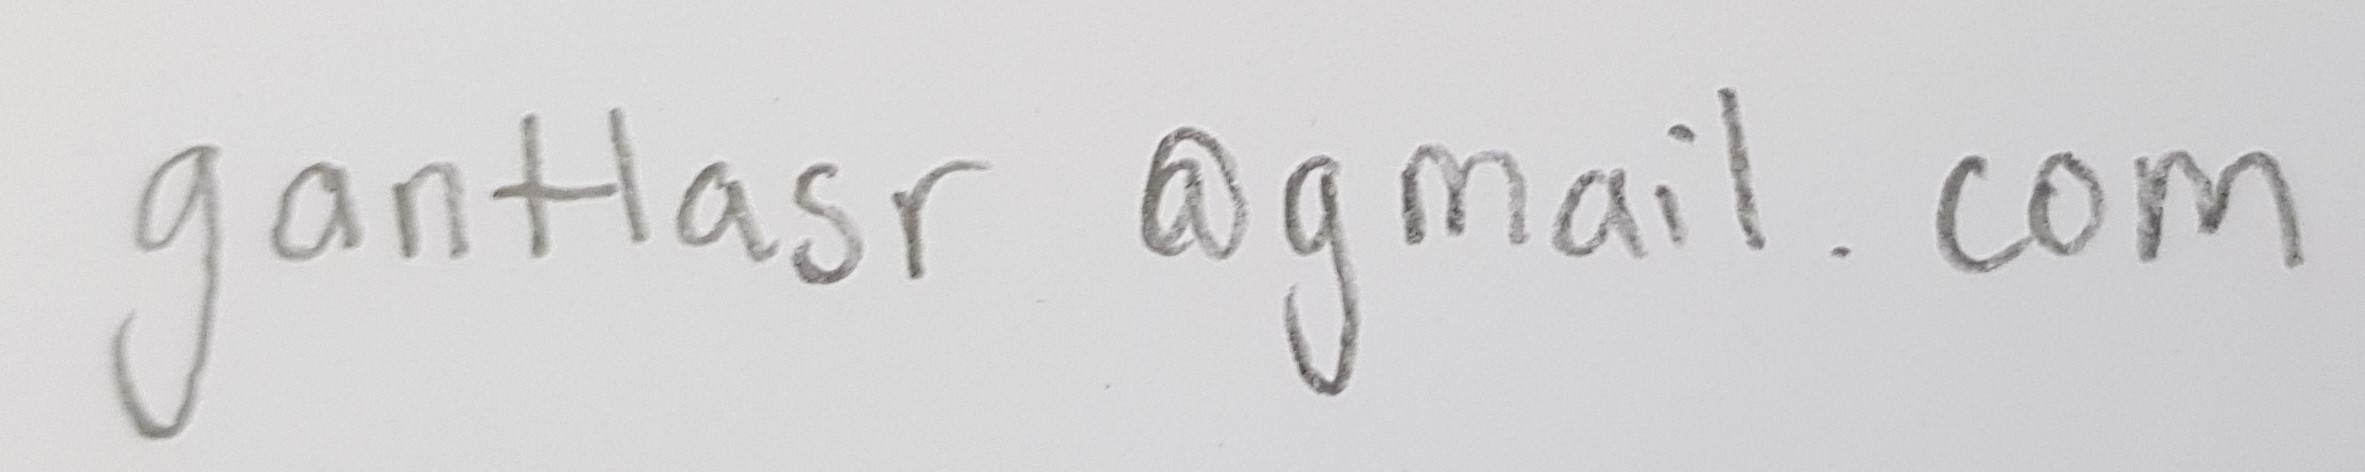 ganHasr @gmail.com